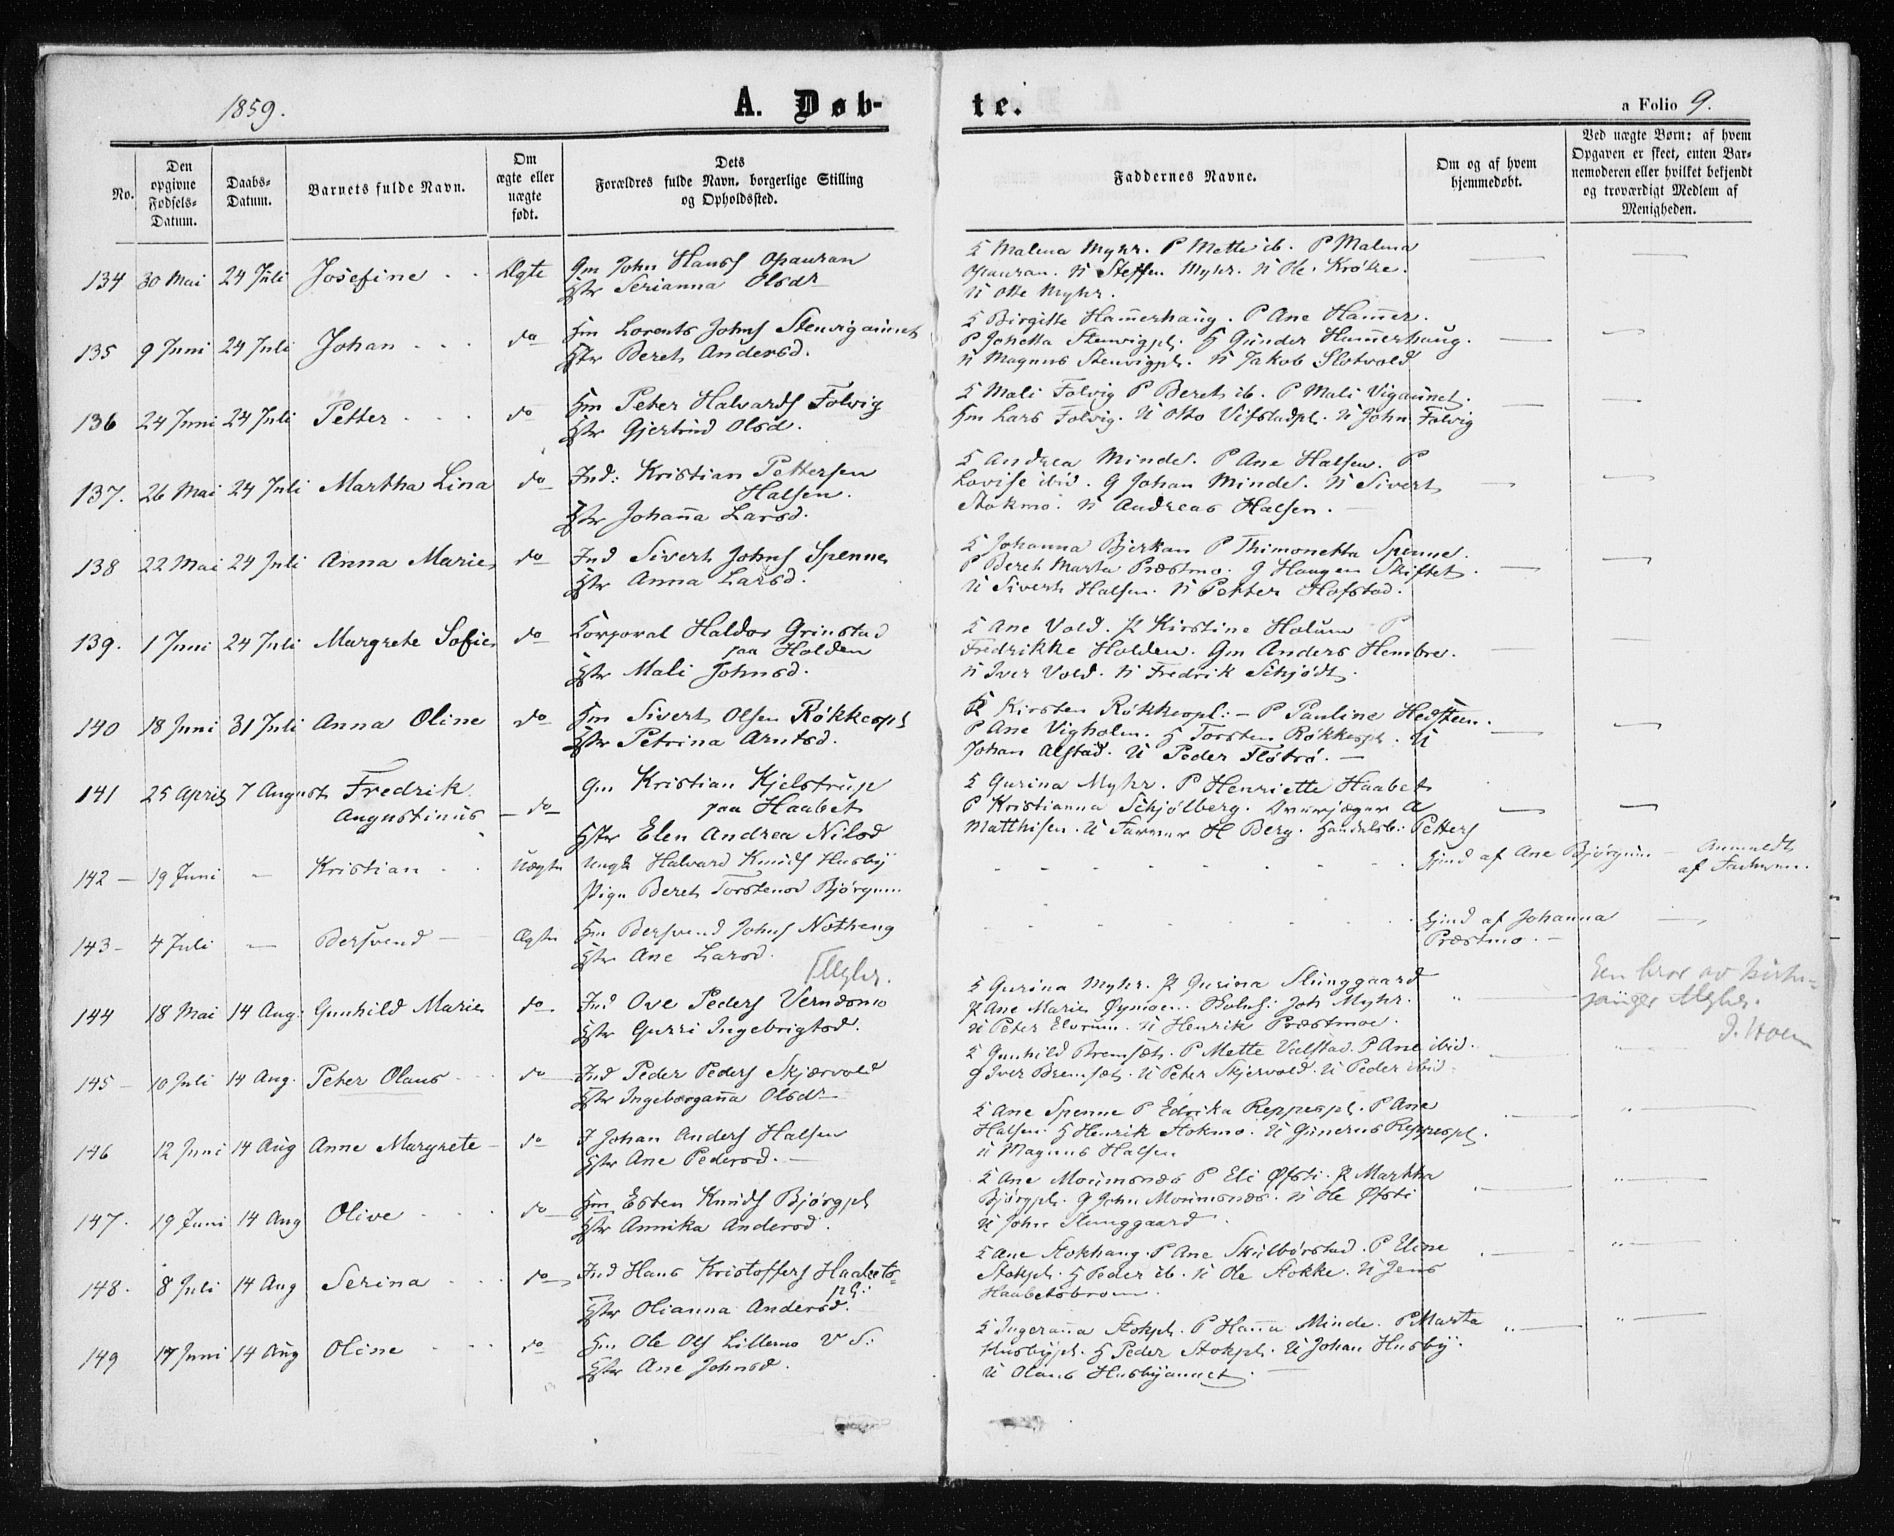 1859.
A. Døb-
te.
a Folio 9.
No.
Den opgivne Fødsels-Datum.
Daabs-Datum.
Barnets fulde Navn.
Om ægte eller uægte født.
Dets Forældres fulde Navn, borgerlige Stilling og Opholdssted.
Faddernes Navne.
Om og af hvem hjemmedøbt.
Ved uægte Børn: af hvem Opgaven er skeet, enten Barnemoderen eller hvilket bekjendt og troværdigt Medlem af Menigheden.
134 30 Mai 24 Juli Josefine Ægte Gm John Hansf Opauran
Hstr Serianna Olsdr
K Malena Myhr. P Mette ib. P Malena
Opauran. U Steffen Myhr. U Ole Krøke.
U Otte Myhr.
135 9 Juni 24 Juli Johan do Hm Lorents Johnsf Stenvigaunet
Hstr Beret Andersd.
K Birgitte Hamerhaug. P Ane Hamer.
P Johetta Stenvigpl. H Gunder Hamerhaug.
U Magnus Stenvigpl. U Jakob Slotvold
136 24 Juni 24 Juli Petter do Hm Peter Halvardsf Folvig
Hstr Gjertrud Olsd.
K Mali Folvig P Beret ib. P Mali Vigaunet.
Hm Lars Folvig. U Otto Vifstadpl. U John Folvig
137. 26 Mai 24 Juli Martha Lina do Ind: Kristian Pettersen
Halsen.
Hstr Johanna Larsd.
K Andrea Minde. P Ane Halsen. P
Lovise ibid. G Johan Minde. U Sivert
Stokmo. U Andreas Halsen.
138 22 Mai 24 Juli Anna Marie do Ind Sivert Johnsf Spenne
Hstr Anna Larsd.
K Johanna Bjerkan P Thimonetta Spenne.
P Beret Marta Præstmo. G Haagen Skiftet.
U Sivert Halsen. U Petter Hofstad.
139. 1 Juni 24 Juli Margrete Sofie do Korporal Haldor Grinstad
paa Holden
Hstr Mali Johnsd.
K Ane Vold. P Kirstine Holum P
Fredrikke Holden. Gm Anders Hembre.
U Iver Vold. U Fredrik Schjødt.
140 18 Juni 31 Juli Anna Oline do Hm Sivert Olsen Røkkespl
Hstr Petrina Arntsd.
K Kirsten Røkkespl: – P Pauline Hedsteen.
P Ane Vigholm. H Torsten Røkkespl. U
Johan Alstad. U Peder Fløtrø. –
141 25 April 7 August Fredrik
Augustinus do Gm Kristian Kjelstrup
paa Haabet
Hstr Elen Andrea Nilsd
K Gurina Myhr. P Henriette Haabet
P Kristianna Schjølberg. A
Matthisen. U H Berg. Handelsb: Petters
142 – 19 Juni – Kristian Uægte Ungk Halvard Knudsf Husby
Pige Beret Torstensd Bjørgum
hjmd af Ane Bjørgum – Anmeldt
af Faderen.
143 – 4 Juli – Bersvend Ægte Hm Bersvend Johnsf Notheng
Hstr Ane Larsd.
hjmd af Johanna
Præstmo. –
144 18 Mai 14 Aug. Gunhild Marie do Ind Ove Pedersf Verndsmo
Hstr Gurri Ingebrigtsd.
K Gurina Myhr. P Gurina Slunggaard
P Ane Marie Øymoen. Joh Myhr.
U Peter Elvrum. U Henrik Præstmoe.
145 – 10 Juli 14 Aug. Peter Olaus do Ind Peder Pedersf Skjærvold
Hstr Ingeborganna Olsdr
K Gunhild Bremset. P Mette Valstad. P Ane ibid.
G Iver Bremset. U Peter Skjervold. U Peder ibid.
146 12 Juni 14 Aug Anne Margrete do I Johan Andersf Halsen
Hstr Ane Pedersd. –
K Ane Spenne P Edrika Reppespl. P Ane
Halsen. H Henrik Stokmo. U Gunerus Reppespl.
U Magnus Halsen
147. 19 Juni 14 Aug Olive do Hm Esten Knudsf Bjørgpl
Hstr Annika Andersd.
K Ane Moumsnæs P Eli Øfsti. P Martha
Bjørgpl. G John Moumsnæs. U Ole Øfsti
U John Slunggaard.
148. 8 Juli 14 Aug Serina do Ind Hans Kristoffersf Haabets-
pl:
Hstr Olianna Andersd.
K Ane Stokhaug. P Ane Skulbørstad. P Eline
Stokpl. H Peder ib. U Ole Stokke. U Jens
149 17 Juni 14 Aug Oline do Hm Ole Olsf Lillemo V S:
Hstr Ane Johnsd.
K Ingeranna Stokpl. P Hanna Minde. P Marta
Husbypl. H Peder Stokpl. U Johan Husby.
U Olaus Husbyaunet.